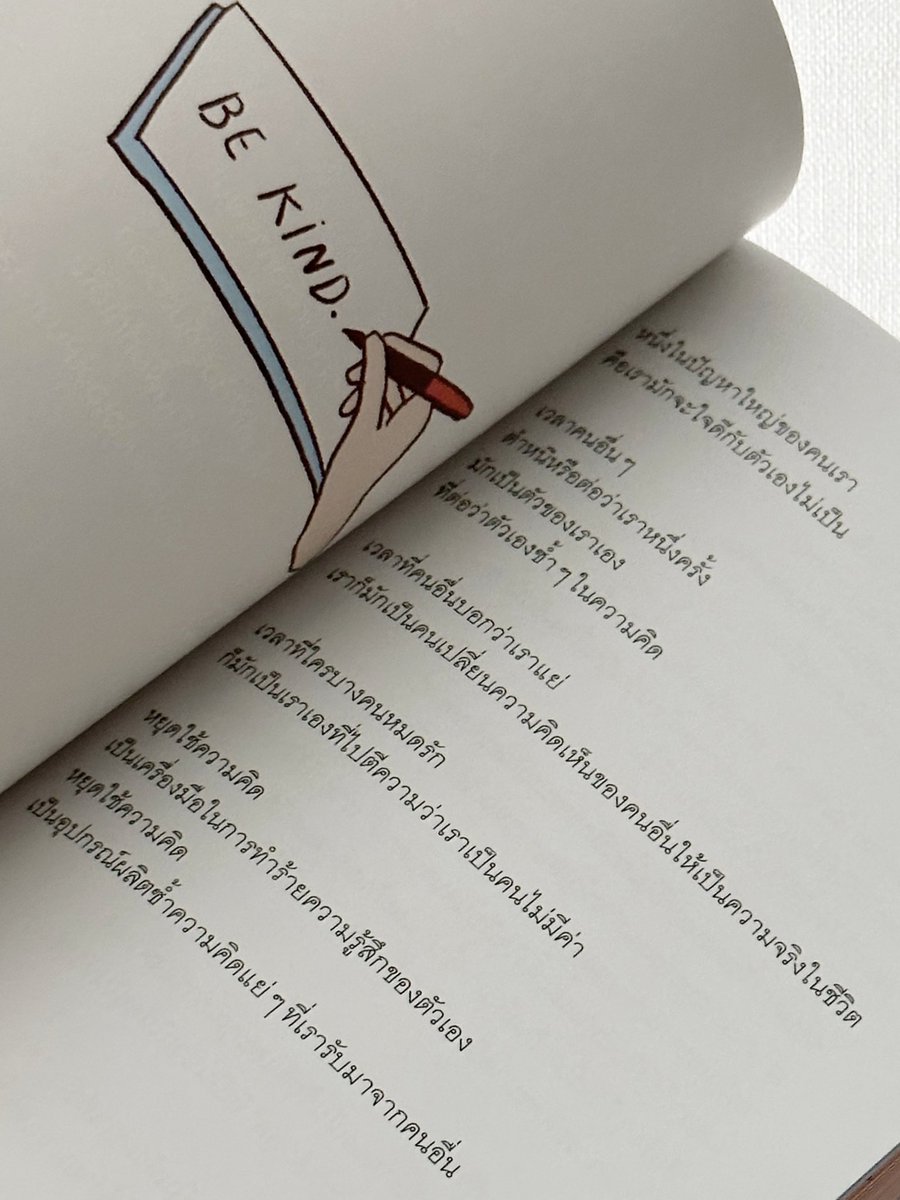 BE KIND.
หนึ่งในปัญหาใหญ่ของคนเรา
คือเรามักจะใจดีกับตัวเองไม่เป็น
เวลาคนอื่น ๆ
ตำหนิหรือต่อว่าเราหนึ่งครั้ง
มักเป็นตัวของเราเอง
ที่ต่อว่าตัวเองซ้ำ ๆ ในความคิด
เวลาที่คนอื่นบอกว่าเราแย่
เราก็มักเป็นคนเปลี่ยนความคิดเห็นของคนอื่นให้เป็นความจริงในชีวิต
เวลาที่ใครบางคนหมดรัก
ก็มักเป็นเราเองที่ไปตีความว่าเราเป็นคนไม่มีค่า
หยุดใช้ความคิด
เป็นเครื่องมือในการทำร้ายความรู้สึกของตัวเอง
หยุดใช้ความคิด
เป็นอุปกรณ์ผลิตซ้ำความคิดแย่ ๆ ที่เรารับมาจากคนอื่น